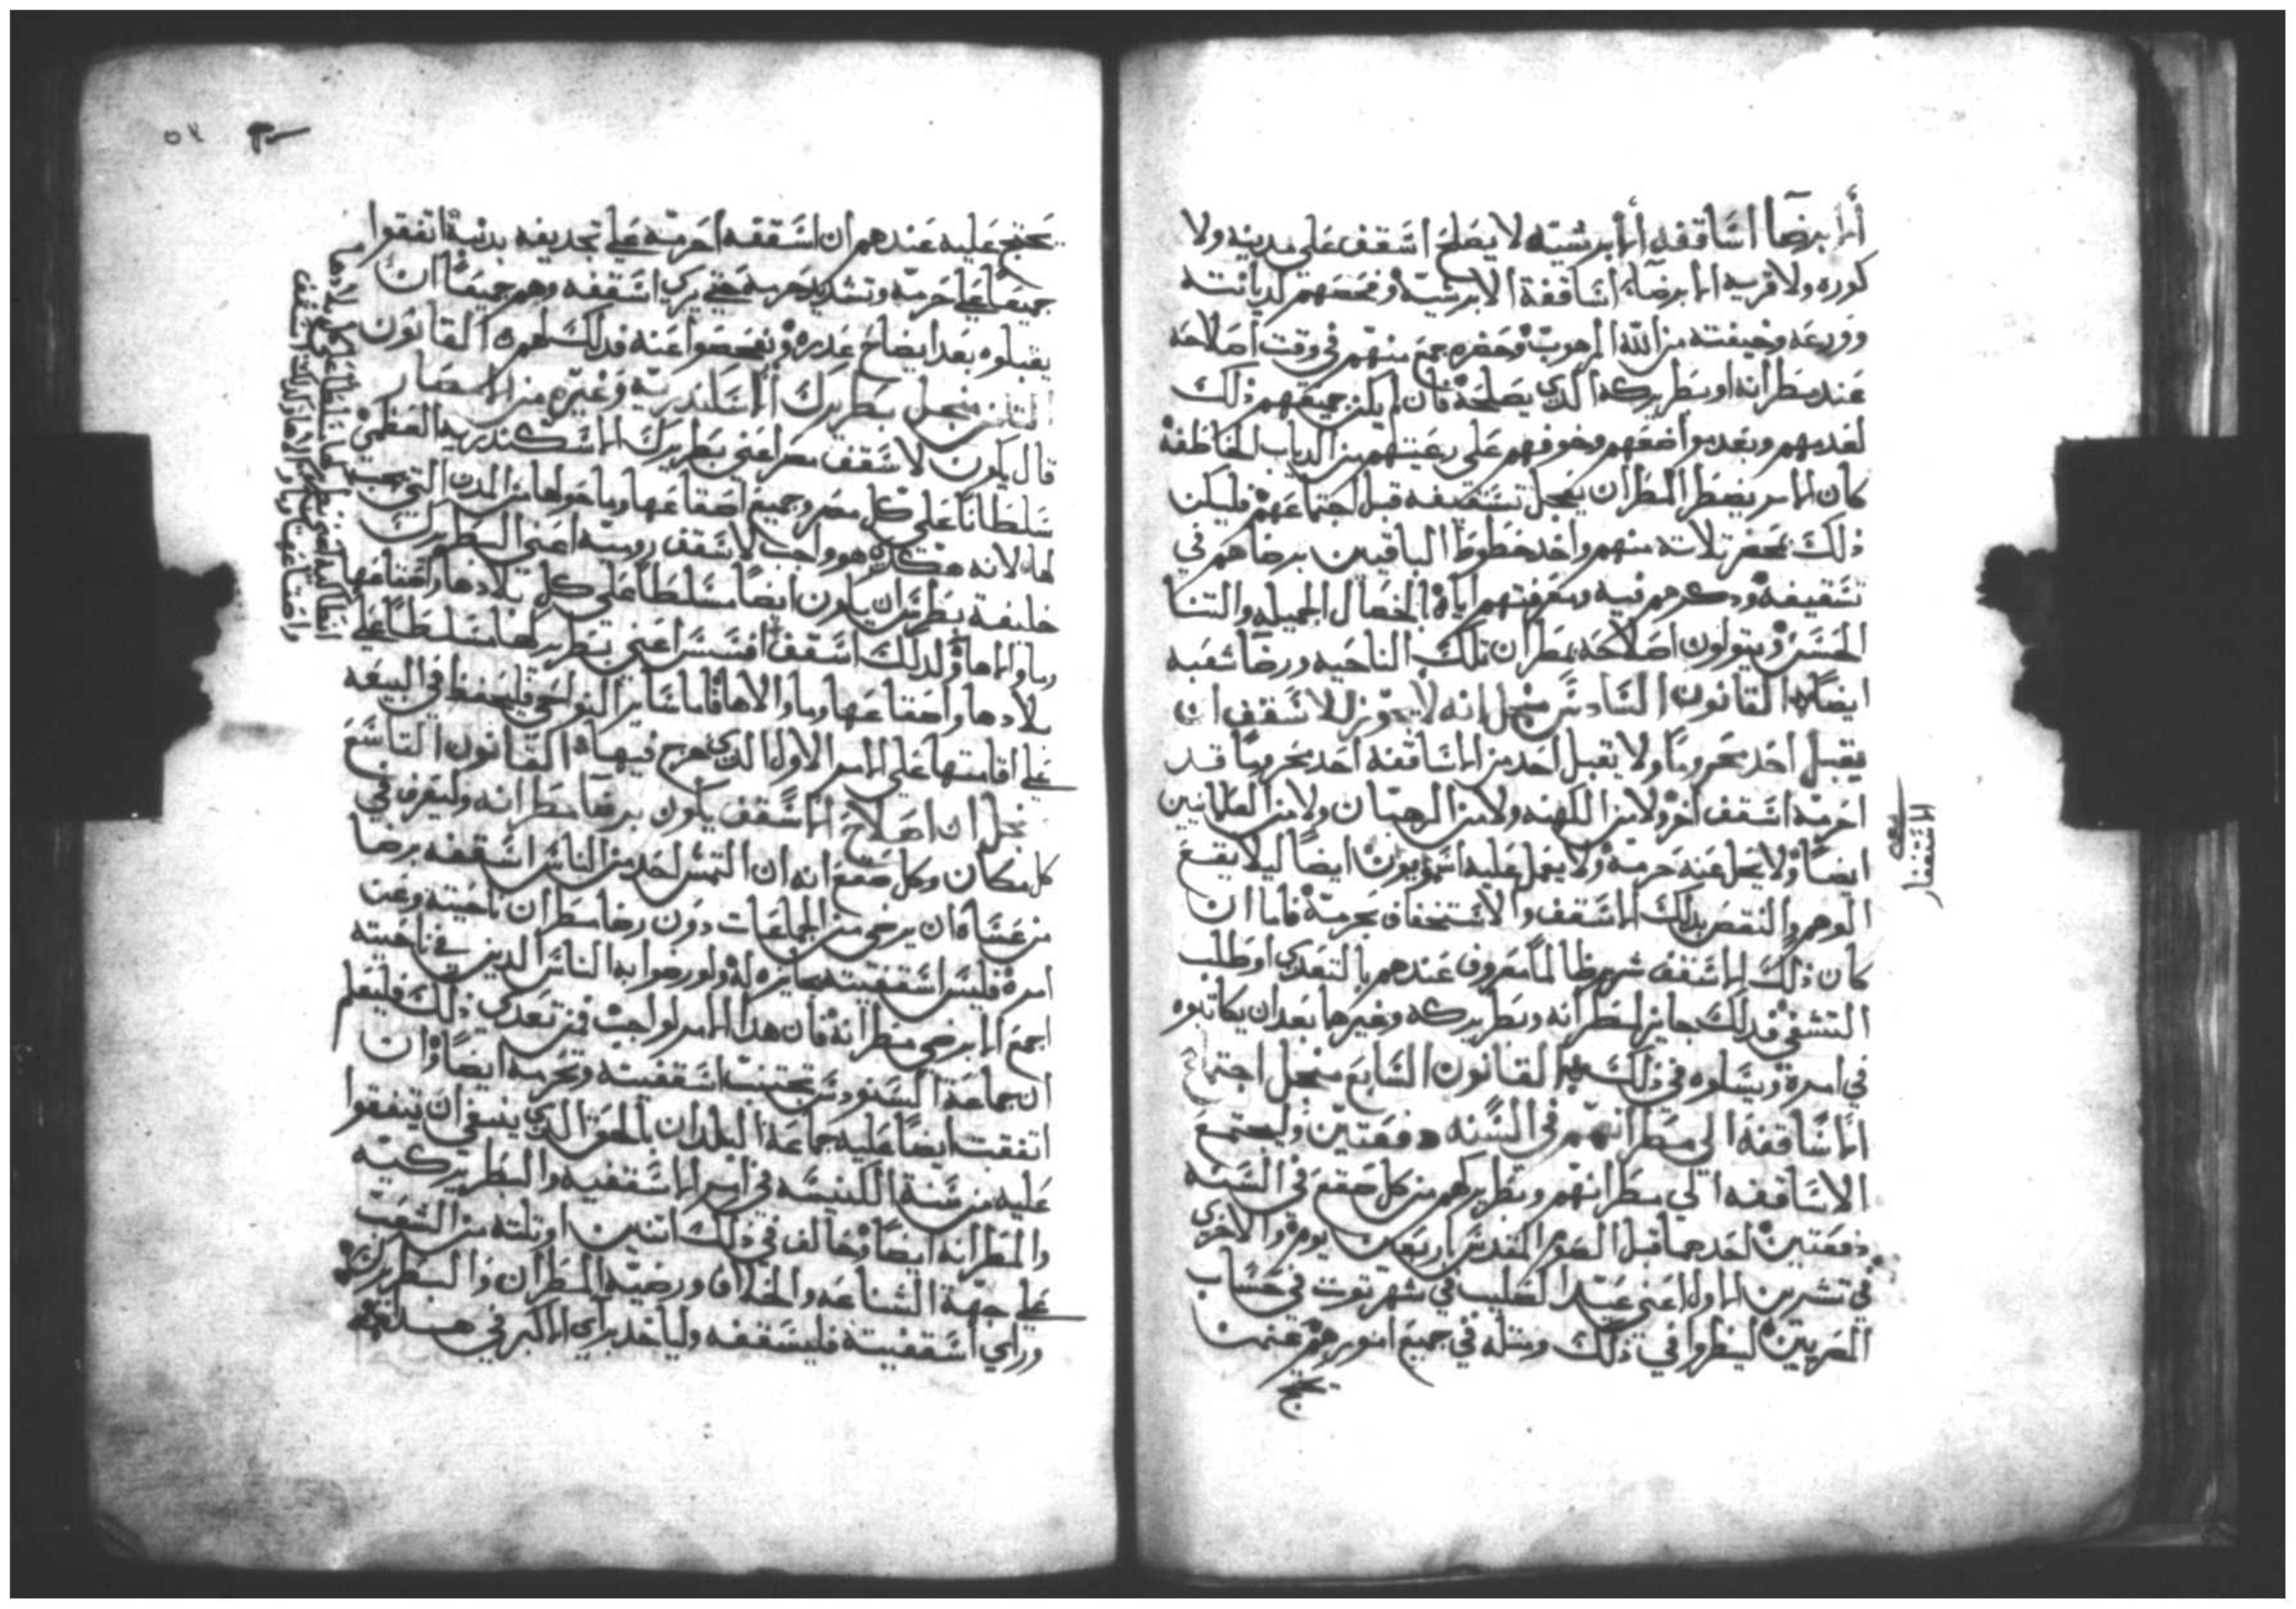 الا برضا اساقفه الابرشيه لا يصلح اسقف على مدينه ولا
كوره ولا قريه الا برضاء اساقفة الابرشيه وفحصهم لديانته
وورعه وخيفته من الله المرهوب وحضره جمع منهم في وقت اصلاحه
عند مطرانه او بطريركه الدي يصلحه فان لم يكن جميعهم ذلك
لبعدهم وبعد مواضعهم وخوفهم على رعيتهم من الدياب الخاطفه
كان الامر يضطر المطران يعجل تسقيفه قبل اجتماعهم فليكن
ذلك بمحضر تلاته منهم واخد خطوط الباقيين برضاهم في
تسقيفه ودكرهم فيه ومعرفتهم اياه بالخصال الجميله والتنا
الحسن ويتولون اصلاحه بمطران تلك الناحيه ورضا شعبه
ايضا القانون السادس منجل انه لا يجوز للاسقف ان
يقبل احد محروما ولا يقبل احد من الاساقفه احد محروما قد
احرمه اسقف اخر ولا من الكهنه ولا من الرهبان ولا من العلمانيين
ايضا ولا يحل عنه حرمه ولا يعمل عليه ايضا ليلا يقع
الوهم والنقص بدلك الاسقف والاستخفاف بحرمه فاما ان
كان ذلك الاسقف شرير ظالما معروف عندهم بالتعدي او طلب
التشفي فدلك جايز لمطرانه وبطريركه وغيرها بعد ان يكاتبوه
في امره ويسلوه في ذلك القانون السابع منجل اجتماع
الاساقفه الي مطرانهم في السنه دفعتين وليجتمع
الاساقفه الي مطرانهم وبطريركهم من كل صقع في السنه
دفعتين احدهما قبل الصوم المقدس اربعين يوم والاخرى
في تشرين الاول اعني عيد الصليب في شهر توت في حساب
المصريين لينظروا في ذلك ومتله في جميع امورهم فمن
الاستغفار
يحتج عليه عندهم ان اسقفه احرمه علي تجديفه بدنبه اتفقوا
جميعا علي حرمه وتشديد حرمه حتي يري اسقفه وهم جميعا ان
يقبلوه بعد ايضاح عدره ويفحصوا عنه فدلك لهم القانون
التامن منجل بطريرك الاسكندريه وغيره من الامصار
قال يكون لاسقف مصر اعني بطريرك الاسكندريه العظمي
سلطانا على كل مصر وجميع اصقاعها وما حولها من المدن التي
لها لانه هكدي هو واجب لاسقف روميه اعني البطريرك
خليفة بطرس ان يكون ايضا مسلطا على كل بلادها واصقاعها
وما والاها ولدلك اسقف افسس اعني بطريركها مسلطا علي
بلادها واصقاعها وما والاها فاما ساير النواحي فليحفظ في البيعه
علي اقامتها على الامر الاول الدي خرج فيها القانون التاسع
منجل ان اصلاح الاسقف يكون برضا مطرانه وليعرف في
كل مكان وكل صقع انه ان التمس احد من الناس اسقفه برضا
من عساه ان يرضي من الجماعات دون رضا مطران ناحيته وعن
امره فليس اسقفيته بجايزه له ولو رضوا به الناس الدين في ناحيته
اجمع الا برضي مطرانه فان هدا الامر لواجب فمن تعدي ذلك فليعلم
ان جماعة السنودس تجتنب اسقفيته وتحرمه ايضا وان
اتفقت ايضا عليه جماعة البلدان بالحق الدي ينبغي ان يتفقوا
عليه من سنة الكنيسه في امر الاسقفيه والبطريركيه
والمطرانه ايضا وخالف في ذلك اتنين او تلته من الشعب
علي جهة الشناعه والخلاف ورضيه المطران والبطريرك
وراي اسقفيته فليسقفه ولياخد براي الاكبر في